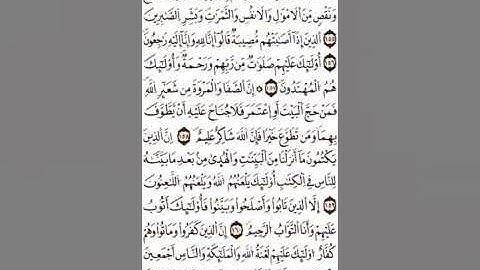 وَنَقْصٍ مِّنَ الْأَمْوَالِ وَالْأَنفُسِ وَالثَّمَرَاتِ وَبَشِّرِ الصَّابِرِينَ
١٥٥ الَّذِينَ إِذَا أَصَابَتْهُم مُّصِيبَةٌ قَالُوا إِنَّا لِلَّهِ وَإِنَّا إِلَيْهِ رَاجِعُونَ
١٥٦ أُولَٰئِكَ عَلَيْهِمْ صَلَوَاتٌ مِّن رَّبِّهِمْ وَرَحْمَةٌ وَأُولَٰئِكَ
هُمُ الْمُهْتَدُونَ ١٥٧ ۞ إِنَّ الصَّفَا وَالْمَرْوَةَ مِن شَعَائِرِ اللَّهِ
فَمَنْ حَجَّ الْبَيْتَ أَوِ اعْتَمَرَ فَلَا جُنَاحَ عَلَيْهِ أَن يَطَّوَّفَ
بِهِمَا وَمَن تَطَوَّعَ خَيْرًا فَإِنَّ اللَّهَ شَاكِرٌ عَلِيمٌ ١٥٨ إِنَّ الَّذِينَ
يَكْتُمُونَ مَا أَنزَلْنَا مِنَ الْبَيِّنَاتِ وَالْهُدَىٰ مِن بَعْدِ مَا بَيَّنَّاهُ
لِلنَّاسِ فِي الْكِتَابِ أُولَٰئِكَ يَلْعَنُهُمُ اللَّهُ وَيَلْعَنُهُمُ اللَّاعِنُونَ
١٥٩ إِلَّا الَّذِينَ تَابُوا وَأَصْلَحُوا وَبَيَّنُوا فَأُولَٰئِكَ أَتُوبُ
عَلَيْهِمْ وَأَنَا التَّوَّابُ الرَّحِيمُ ١٦٠ إِنَّ الَّذِينَ كَفَرُوا وَمَاتُوا وَهُمْ
كُفَّارٌ أُولَٰئِكَ عَلَيْهِمْ لَعْنَةُ اللَّهِ وَالْمَلَائِكَةِ وَالنَّاسِ أَجْمَعِينَ